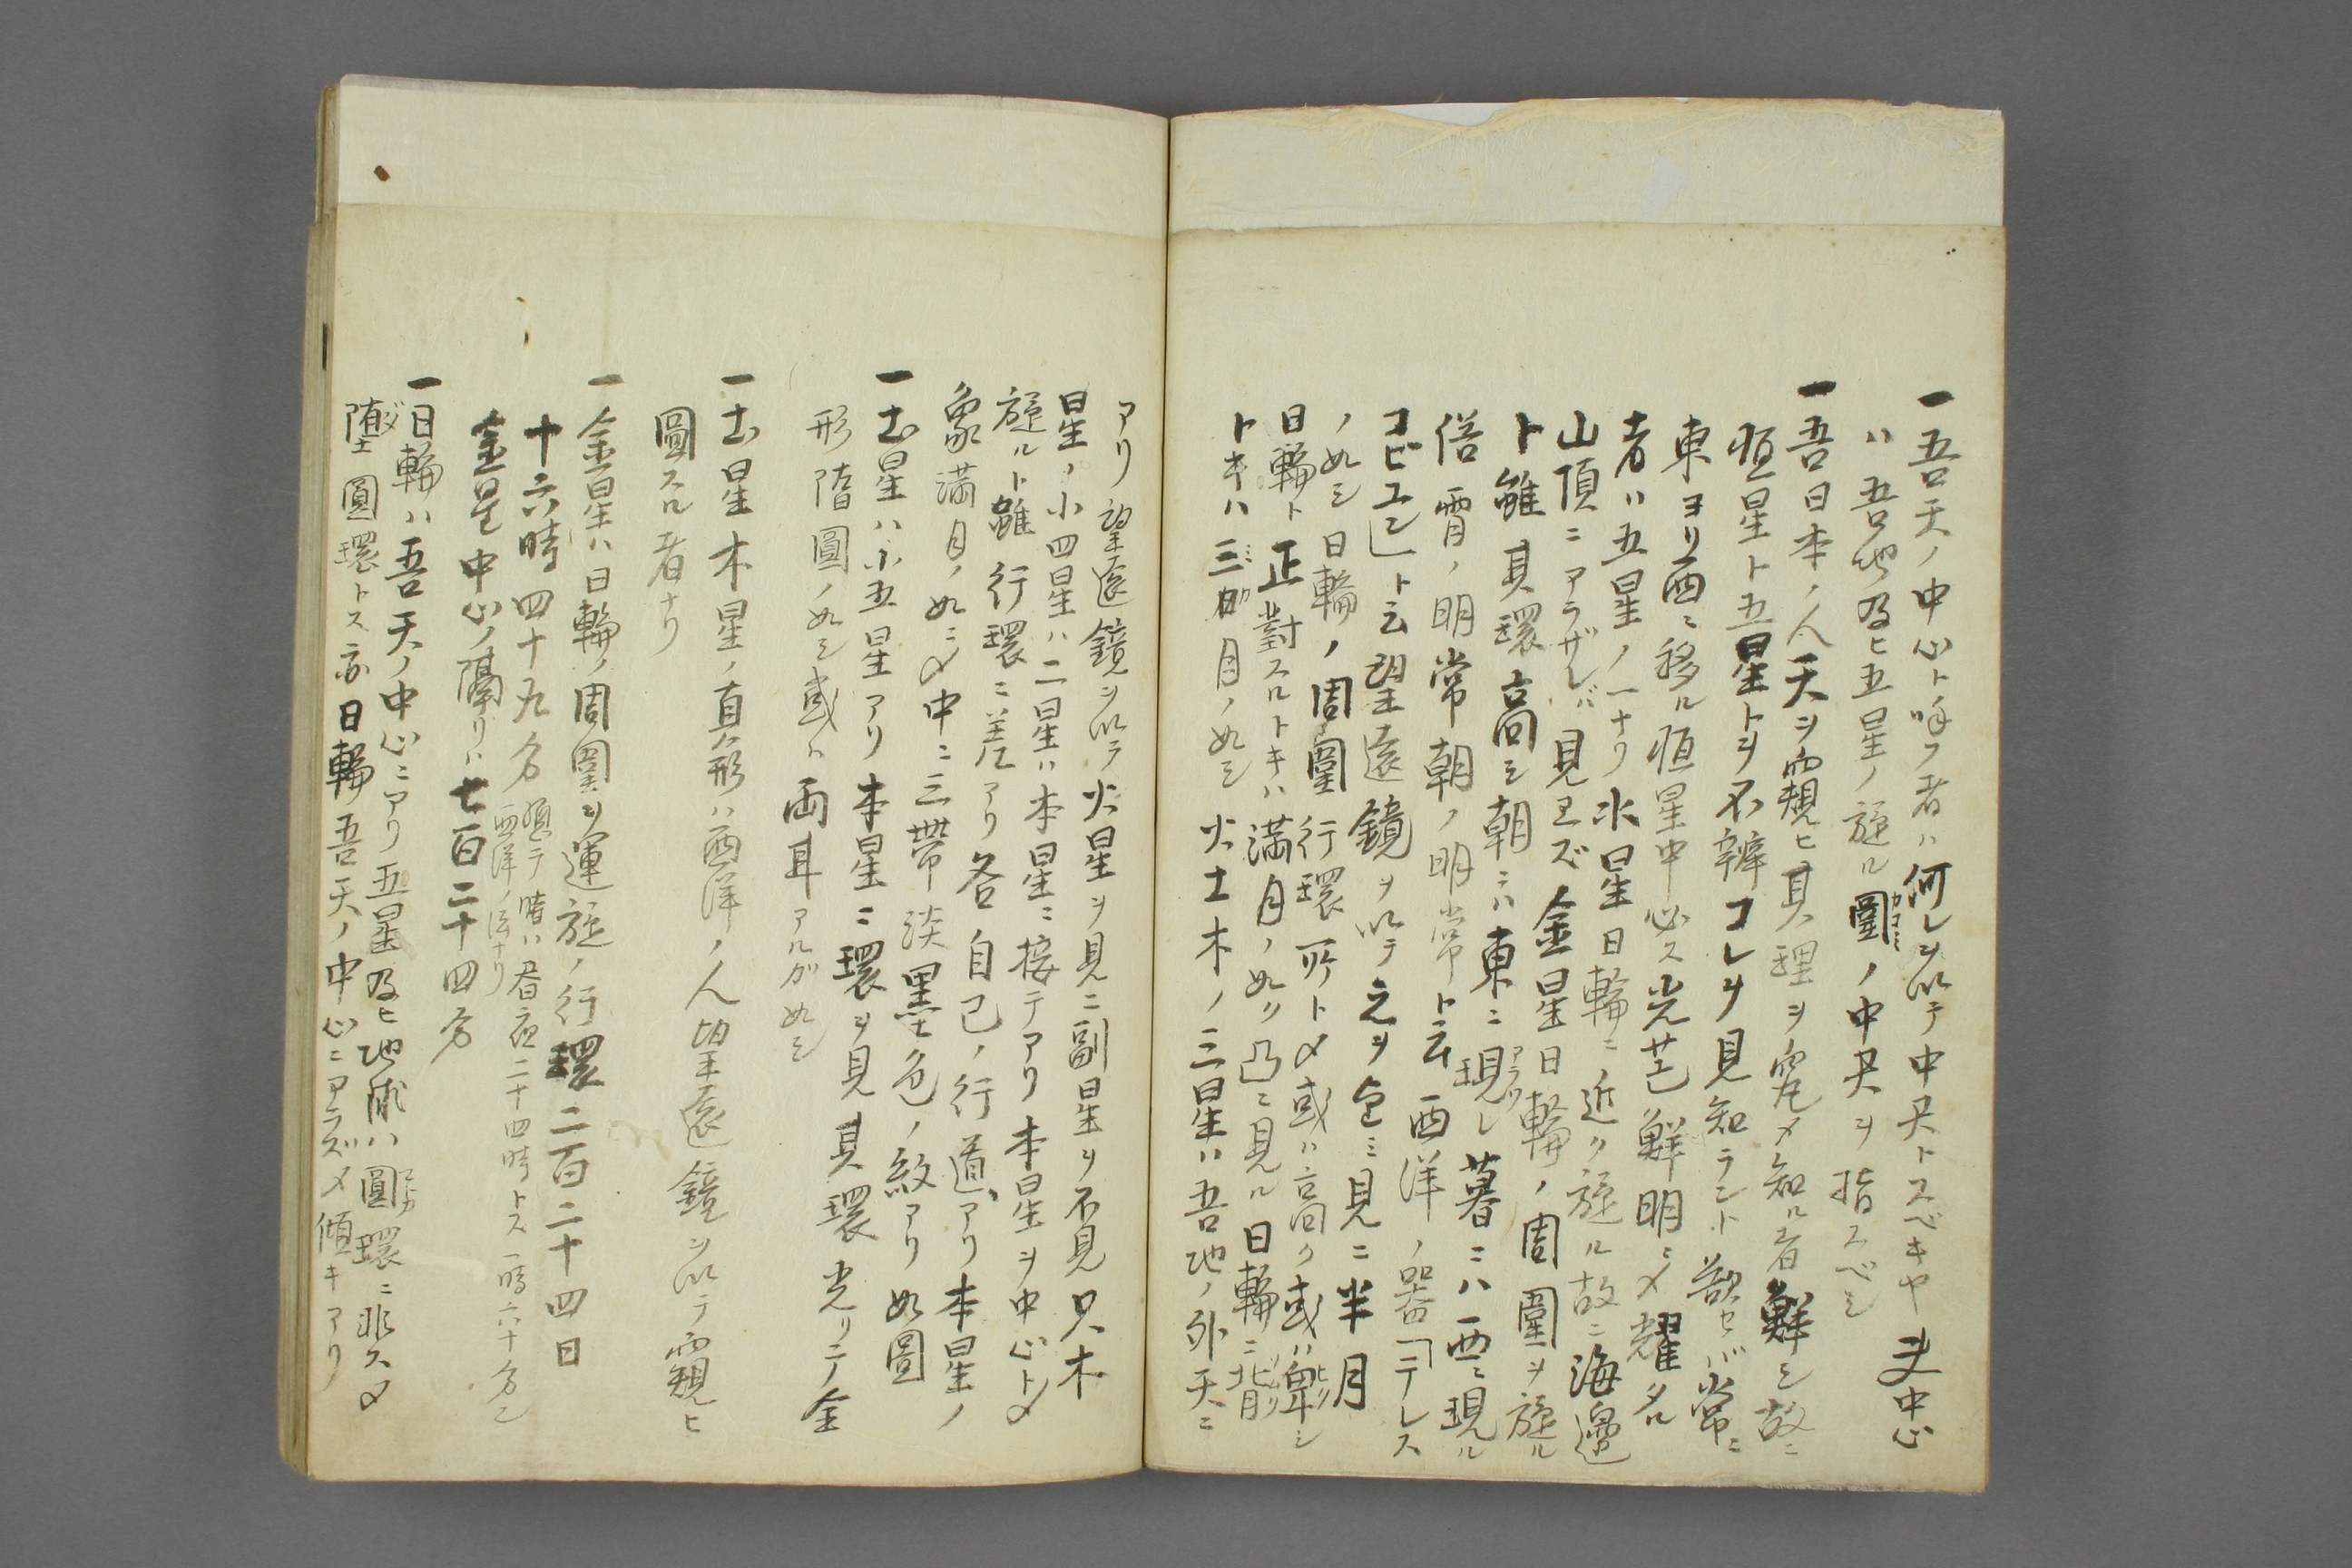 一吾天ノ中心ト呼フ者ハ何レヲ以テ中央トスベキヤ夫中心
ハ吾地及ヒ五星ノ旋ル圍ノ中央ヲ指スベシ
一吾日本ノ人天ヲ窺ヒ其理ヲ究メ知ル者鮮シ故ニ
恒星ト五星トヲ不辨コレヲ見知ラント欲セバ常ニ
東ヨリ西ニ移ル恒星中必ス光芒鮮明ニ〆耀タル
者ハ五星ノ一ナリ水星日輪ニ近ク旋ル故ニ海邉
山頂ニアラザレバ見エズ金星日輪ノ周圍ヲ旋ル
ト雖其環高シ朝ニハ東ニ現レ暮ニハ西ニ現ル
俗宵ノ明常朝ノ明常ト云西洋ノ器「テレス
コピユン」ト云望遠鏡ヲ以テ之ヲ見ニ半月
ノ如シ日輪ノ周圍行環所ト〆或ハ高ク或ハ卑シ
日輪ト正對スルトキハ満月ノ如ク凸ニ見ル日輪ニ背
トキハ三日月ノ如シ火土木ノ三星ハ吾地ノ外天ニ
アリ望遠鏡ヲ以テ火星ヲ見ニ副星ヲ不見只木
星ノ小四星ハ二星ハ本星ニ接テアリ本星ヲ中心ト〆
旋ルト雖行環ニ差アリ各自己ノ行道アリ本星ノ
象満月ノ如ニ〆中ニ三帯淡黒色ノ紋アリ如圖
一土星ハ小五星アリ本星ニ環ヲ見其環光リニテ全
形楕圓ノ如シ或ハ両耳アルガ如シ
一土星木星ノ真形ハ西洋ノ人望遠鏡ヲ以テ窺ヒ
圖スル者ナリ
一金星ハ日輪ノ周圍ヲ運旋ノ行環二百二十四日
十六時四十九分 總テ時ハ昼夜二十四時トス一時六十分ニ
西洋ノ法ナリ
金星中心ノ隔リハ七百二十四分
一日輪ハ吾天ノ中心ニアリ五星及ヒ地球ハ圓環ニ非ス〆
堕圓環トス亦日輪吾天ノ中心ニアラズ〆傾キアリ